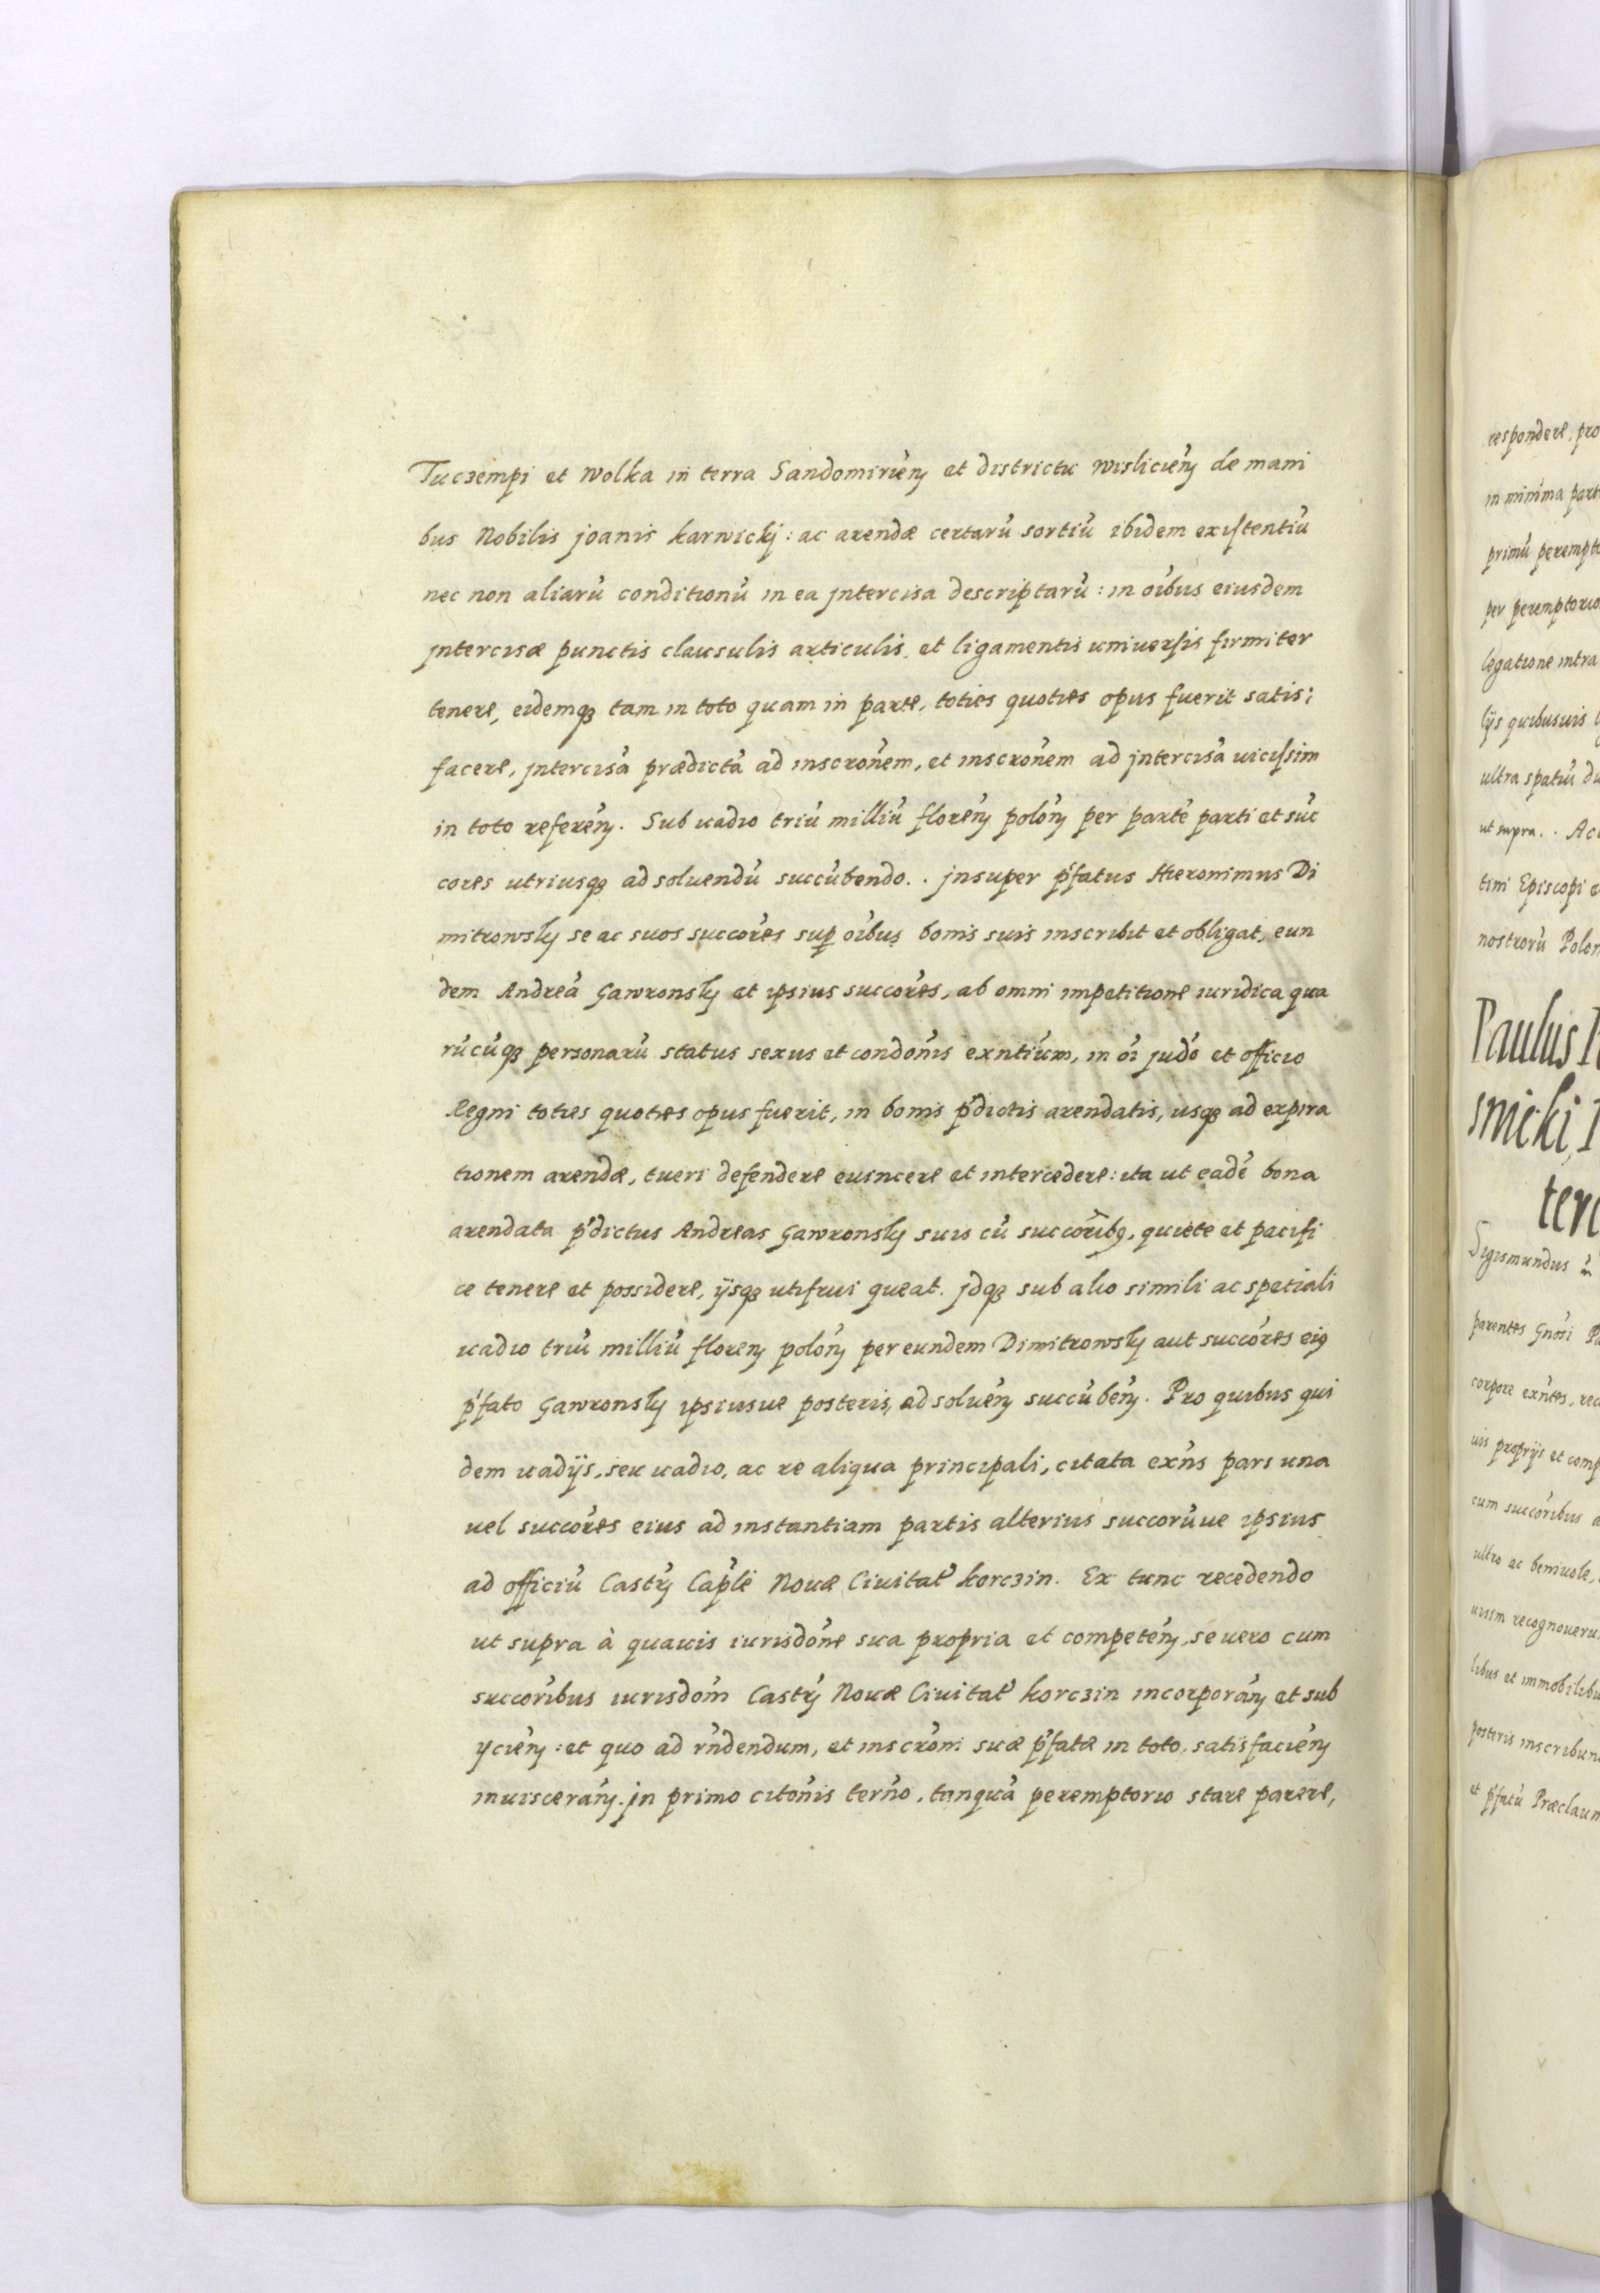 Tuczempi et Wolka in terra Sandomirień et districtu wislicień de mani
bus Nobilis Joanis Karwickj: ac arendæ certarū sortiū ibidem existentiū
nec non aliarū conditionū in ea jntercisa descriptarū: in oībus eiusdem
jntercisæ punctis clausulis articulis et ligamentis universis firmiter
tenere, eidemqȝ tam in toto quam in parte, toties quoties opus fuerit satis:
facere, jntercisā prædictā ad inscrōnem, et inscrōnem ad jntercisā uicissim
in toto referēń. Sub uadio triū milliū floreń poloń per partē parti et suc
cores utriusqȝ ad soluendū succūbendo.. jnsuper ṕfatus Hieronimus Di
mitrowsky se ac suos succores sup oībus bonis suis inscribit et obligat, eun
dem Andreā Gawronsky et ipsius succōres, ab omni impetitione iuridica qua
rūcūqȝ personarū status sexus et condōnis exntium, in oī judō et officio
Regni toties quoties opus fuerit, in bonis ṕdictis arendatis, usqȝ ad expira
tionem arendæ, tueri defendere euincere et intercedere: ita ut eadē bona
arendata ṕdictus Andreas Gawronsky suis cū succorībꝯ, quiete et pacifi
ce tenere et possidere, ijsqȝ utifrui queat. jdqȝ sub alio simili ac speciali
uadio triū milliū floreń poloń per eundem Dimitrowsky aut succōres eiꝯ
ṕfato Gawronsky ipsiusue posteris, ad solueń succūbeń. Pro quibus qui
dem uadijs, seu uadio, ac re aliqua principali, citata exn̄s pars una
uel succōres eius ad instantiam partis alterius succorūue ipsius
ad officiū Castrń Capl̄e Nouæ Ciuitat̄ Korczin. Ex tunc recedendo
ut supra à quauis iurisdōne sua propria et competeń, se uero cum
succorībus iurisdōni Castrń Nouæ Ciuitat̄ Korczin incorporań et sub
ijcień: et quo ad rn̄dendum, et inscrōni suæ ṕfatæ in toto, satisfacień
inuiscerań. jn primo citōnis terño, tanquā peremptorio stare parere,
respondere, pro
in minima part
primū perempto
per peremptorio
legatione intra
lijs quibusuis
ultra spatiū du
ut supra.. Ac
tini Episcopi
nostrorū Polon
Paulus
smicki,
Sigismundus
parentes Gnōsi
corpore exn̄tes, rec
uis proprijs et comp
cum succorībus
ultro ac beniuole,
recognoueru
libus et immobilibu
posteris inscribun
et ṕfatū Præclarum